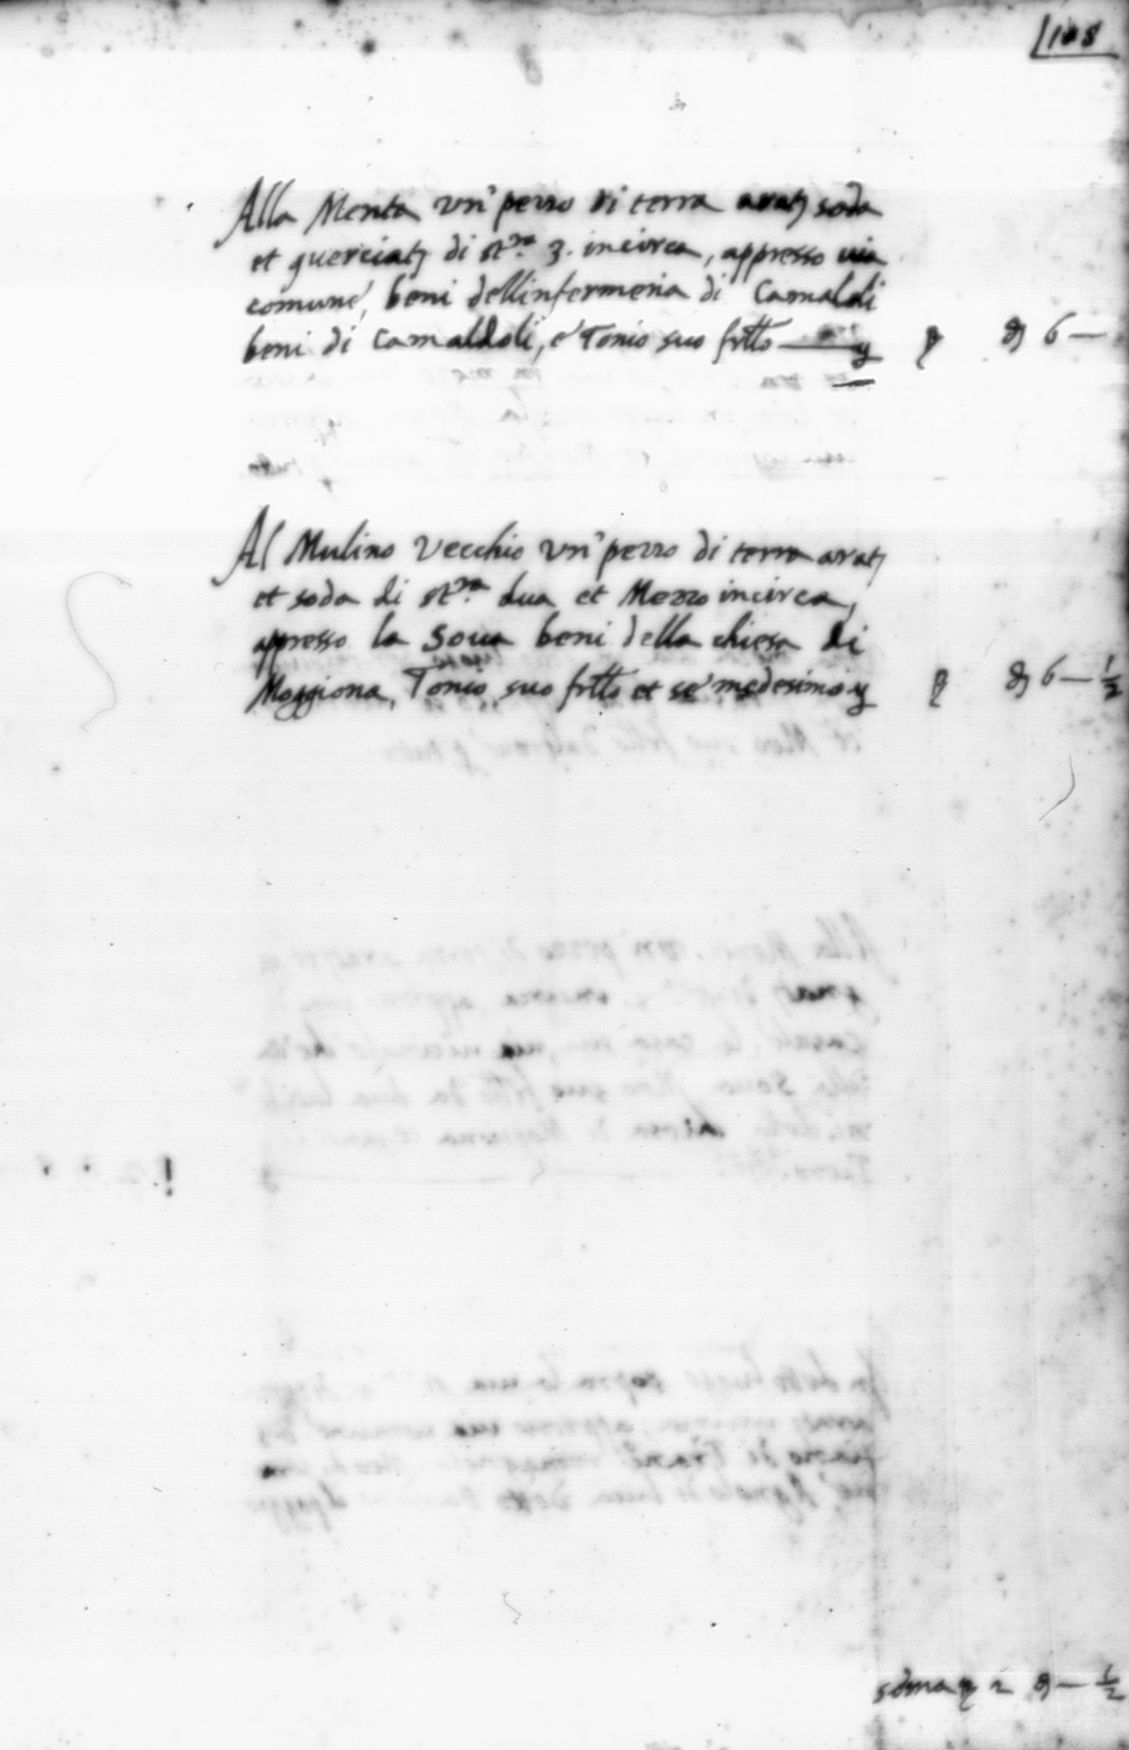 148
Alla Menta un' pezzo di terra arat, soda
et querciat, di st.ra 3. incirca, appresso via
comune, beni dell'infermeria di Camaldoli
beni di Camaldoli, e' Tonio suo frllo 6 —
Al Mulino Vecchio un' pezzo di terra arat,
et soda di st.ra dua et Mezzo incirca,
appresso la Soua beni della chiesa di
Moggiona, Tonio suo frllo et se' medesimo 6 — 1/2
soma 2 — 1/2